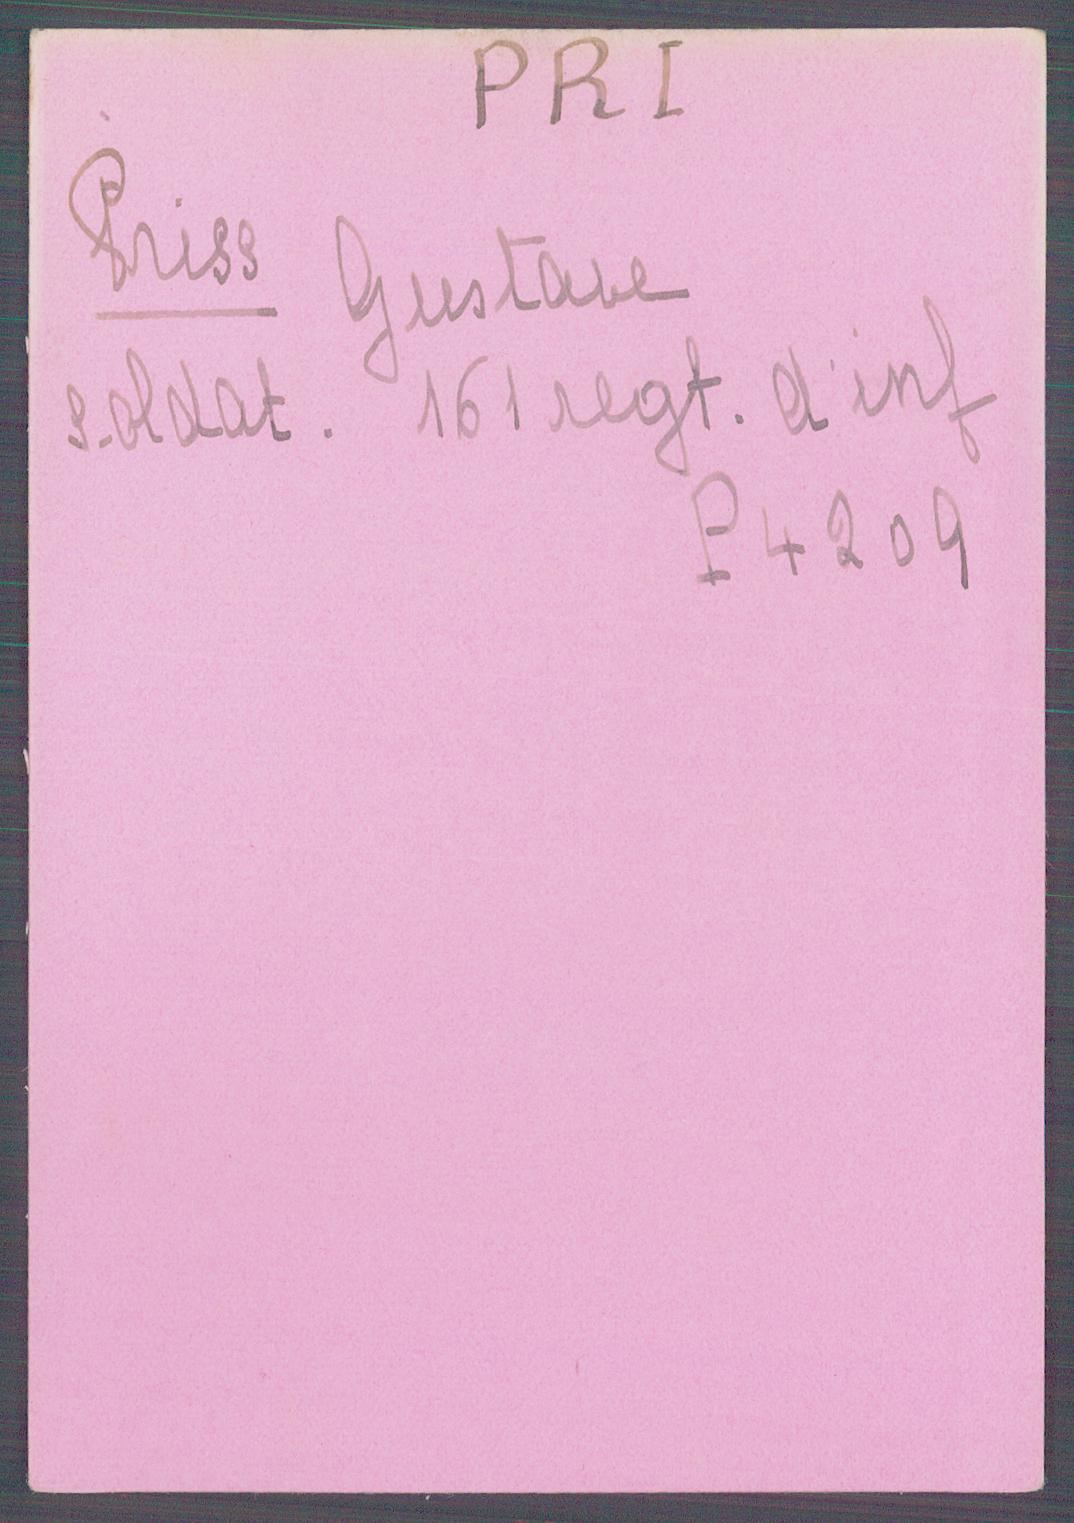 PRI
Priss Gustave
soldat. 161 regt. d'inf
P 4209